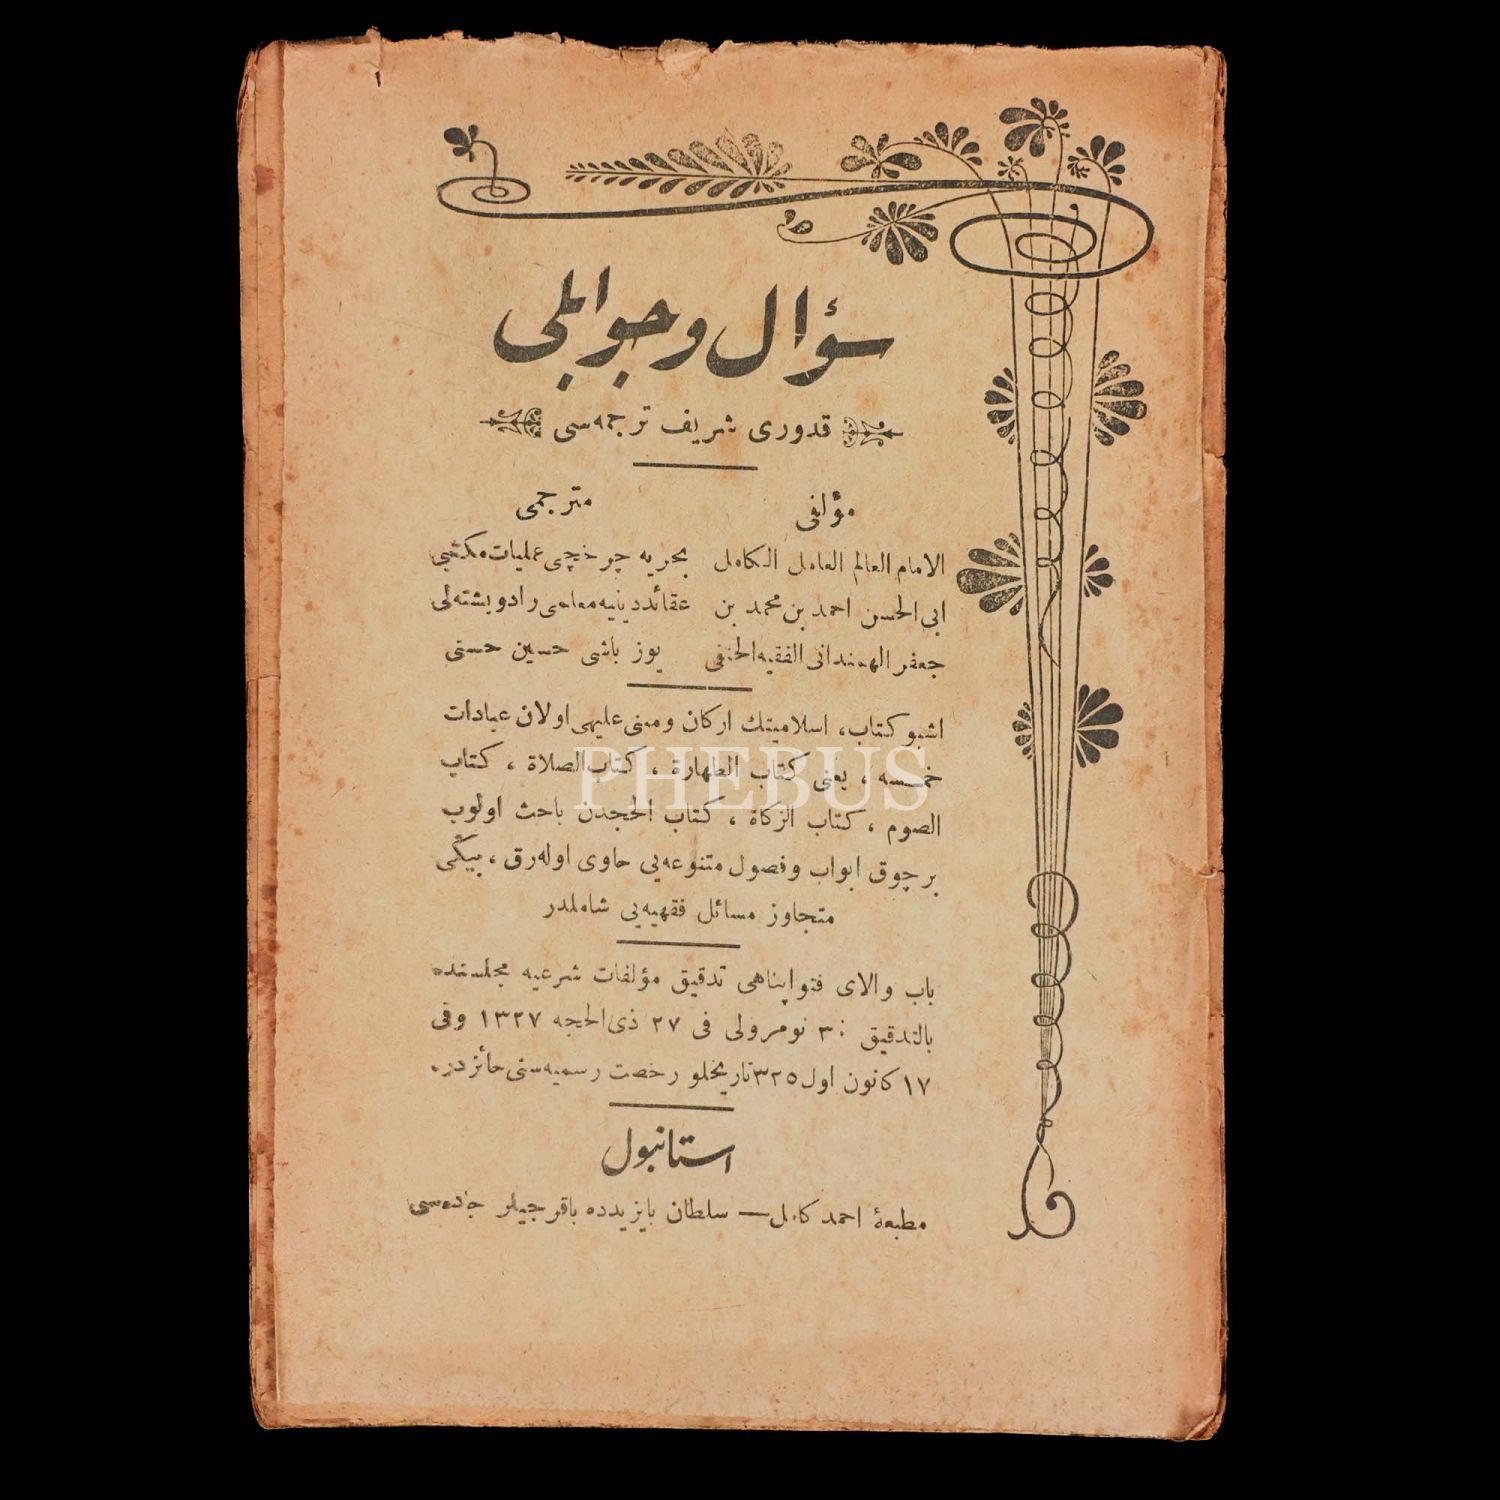 سؤال وجوابلی
قدوری شریف ترجمه‌سی
مؤلفی
الامام العالم العامل الکامل
ابی الحسن احمد بن محمد بن
جعفر الهمندانی الفقیه الحنفی
مترجمی
بحریه چرخچی عملیات مکتبی
عقائد دینیه معلمی رادوبشته‌لی
یوز باشی حسین حسنی
اشبو کتاب، اسلامیتك ارکان ومبنی علیهی اولان عبادات
خمسه ، یعنی کتاب الطهارة ، کتاب الصلاة ، کتاب
الصوم ، کتاب الزکاة ، کتاب الحجدن باحث اولوب
بر چوق ابواب وفصول متنوعه‌یی حاوی اوله‌رق ، بیڭی
متجاوز مسائل فقهیه‌یی شاملدر
باب والای فتواپناهی تدقیق مؤلفات شرعیه مجلسنده
بالتدقیق : ٣ نومرولی فی ٢٧ ذی الحجه ١٣٢٧ وفی
١٧ کانون اول ٣٢٥ تاریخلو رخصت رسمیه‌سنی حائزدر.
استانبول
مطبعهٔ احمد کامل — سلطان بایزیدده باقرجیلر جاده‌سی
PHEBUS